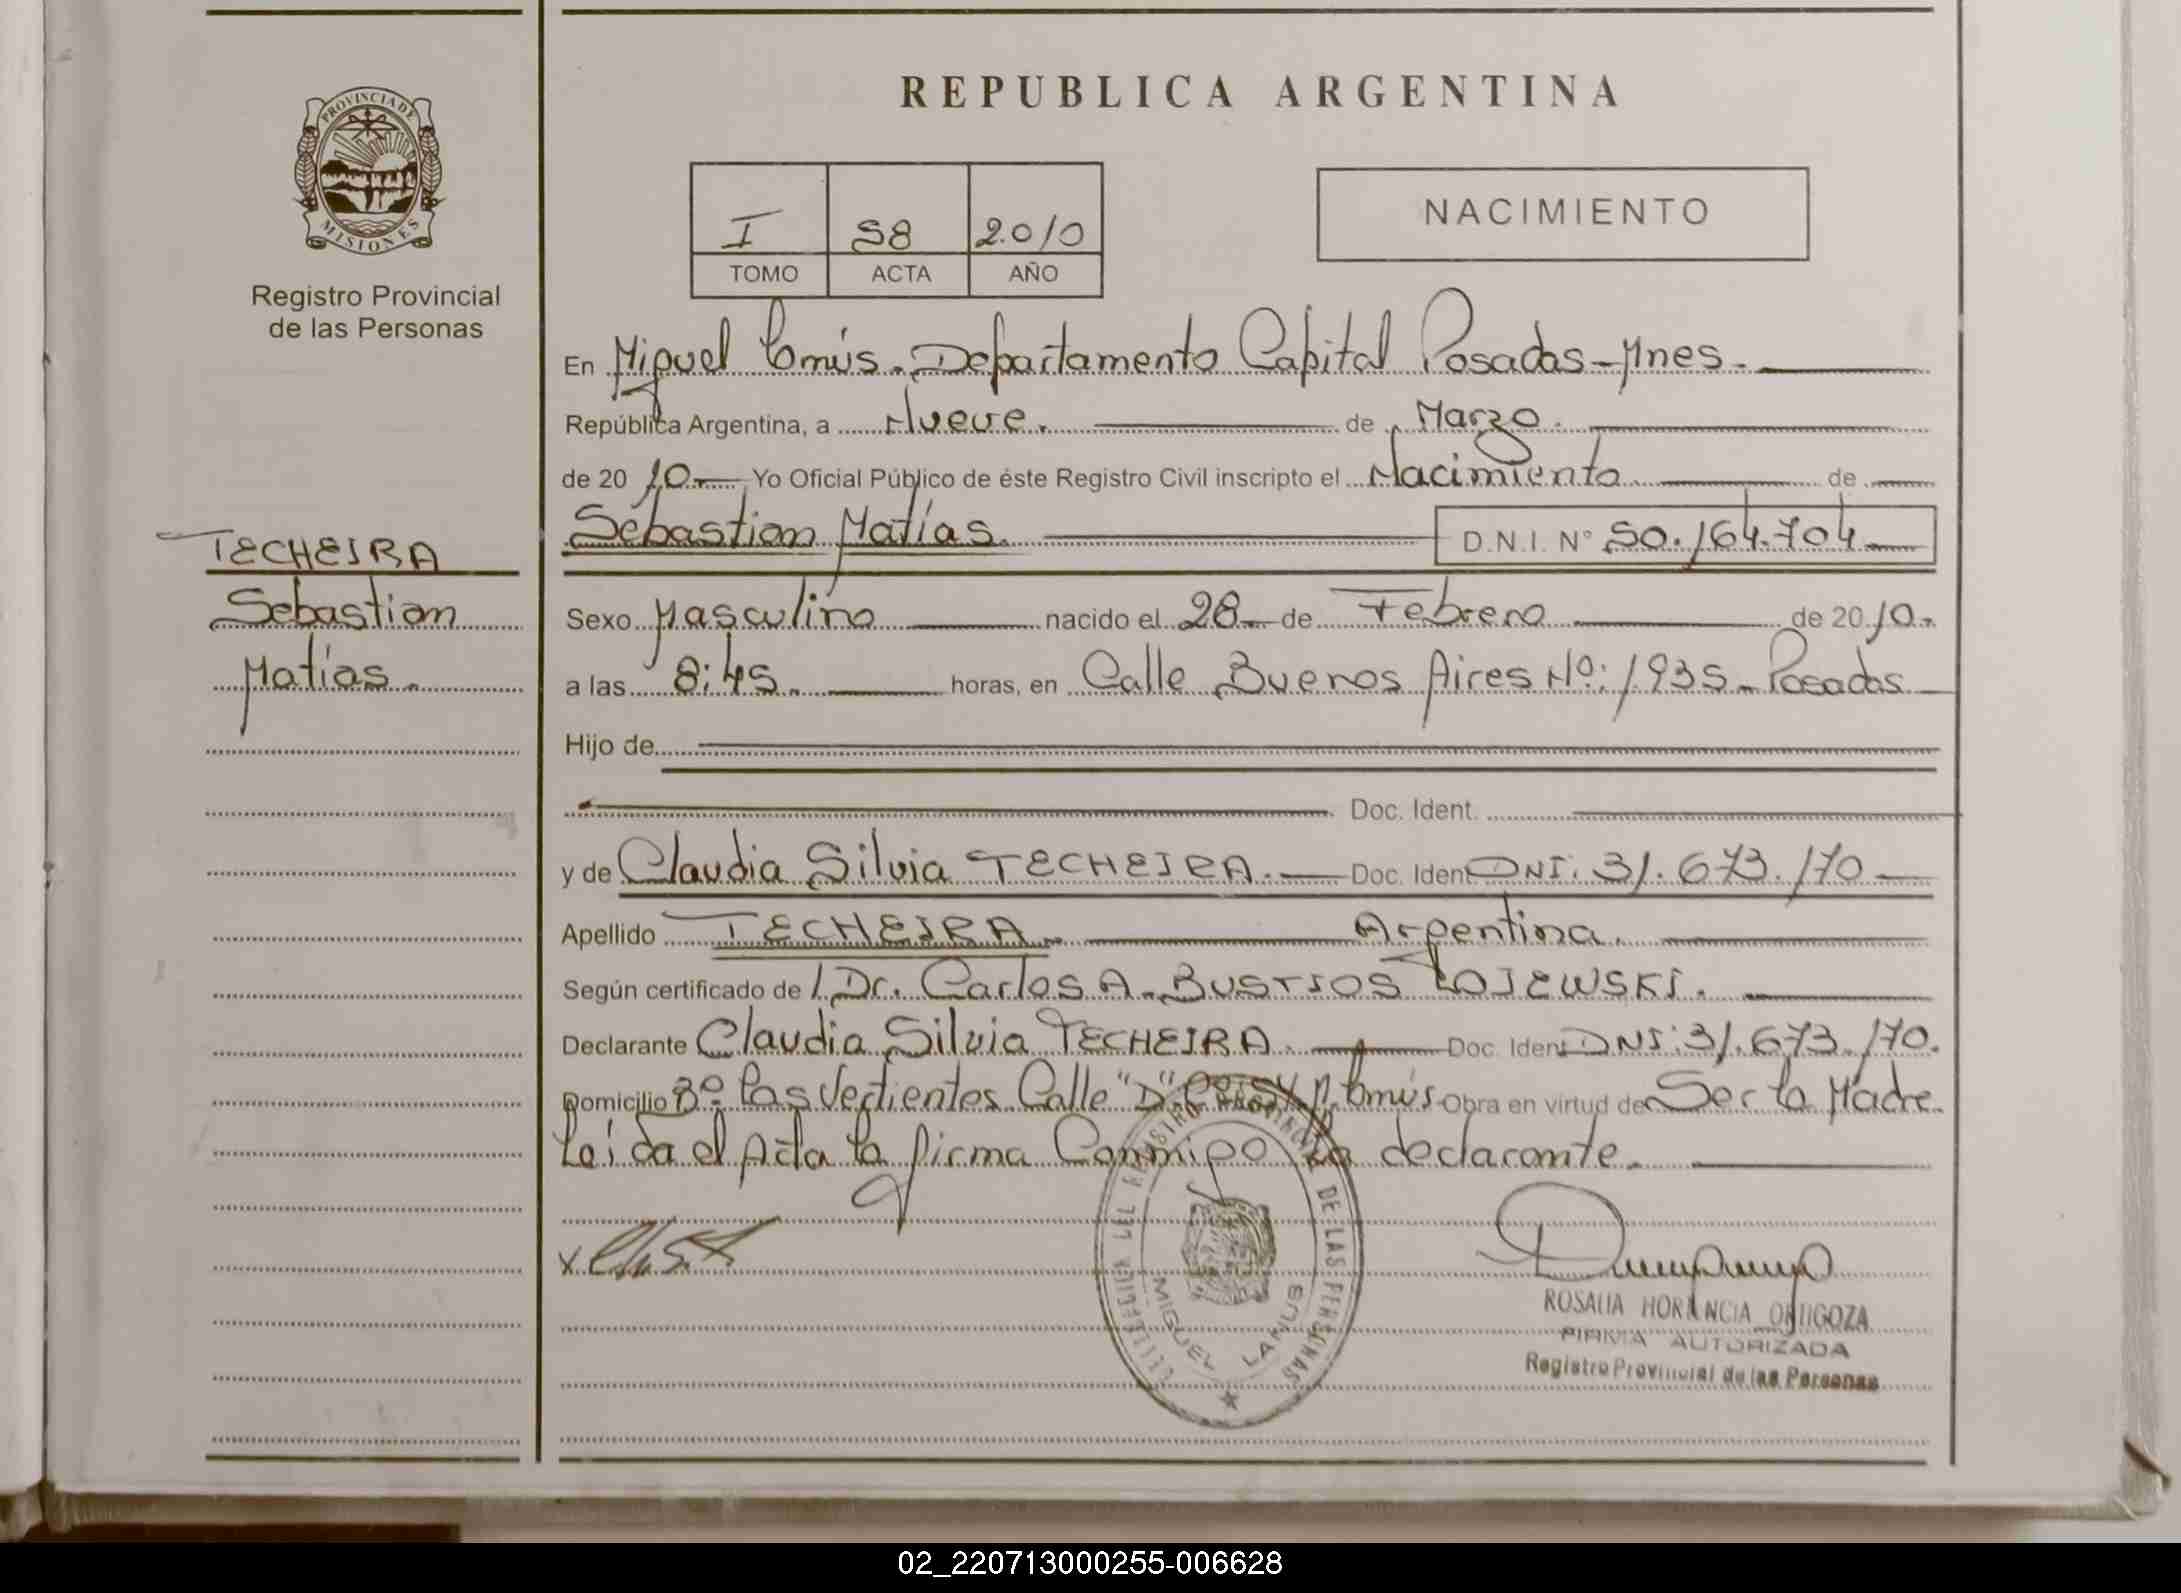 REPUBLICA ARGENTINA
PROVINCIA DE
MISIONES
Registro Provincial
de las Personas
I 58 2.010
TOMO ACTA AÑO
NACIMIENTO
En Miguel Lanús. Departamento Capital Posadas-Mnes.
República Argentina, a Nueve. de Marzo.
de 20 10 Yo Oficial Público de éste Registro Civil inscripto el Nacimiento de
Sebastian Matías. D.N.I. N° 50.164.704
TECHEIRA
Sebastian
Matías.
Sexo Masculino nacido el 28 de Febrero de 20 10.
a las 8:45. horas, en Calle Buenos Aires Nº: 1935 Posadas
Hijo de
Doc. Ident.
y de Claudia Silvia TECHEIRA. Doc. Ident DNI: 31.673.170
Apellido TECHEIRA. Argentina.
Según certificado de Dr. Carlos A. BUSTIOS LOJEWSKI.
Declarante Claudia Silvia TECHEIRA. Doc. Ident DNI: 31.673.170.
Domicilio Bº Las Vertientes Calle "D" M. Lanús Obra en virtud de Ser la Madre
Leída el Acta la firma Conmigo la declarante.
DEL REGISTRO PROVINCIAL DE LAS PERSONAS
MIGUEL LANUS
ROSALIA HORTENCIA ORTIGOZA
FIRMA AUTORIZADA
Registro Provincial de las Personas
02_220713000255-006628